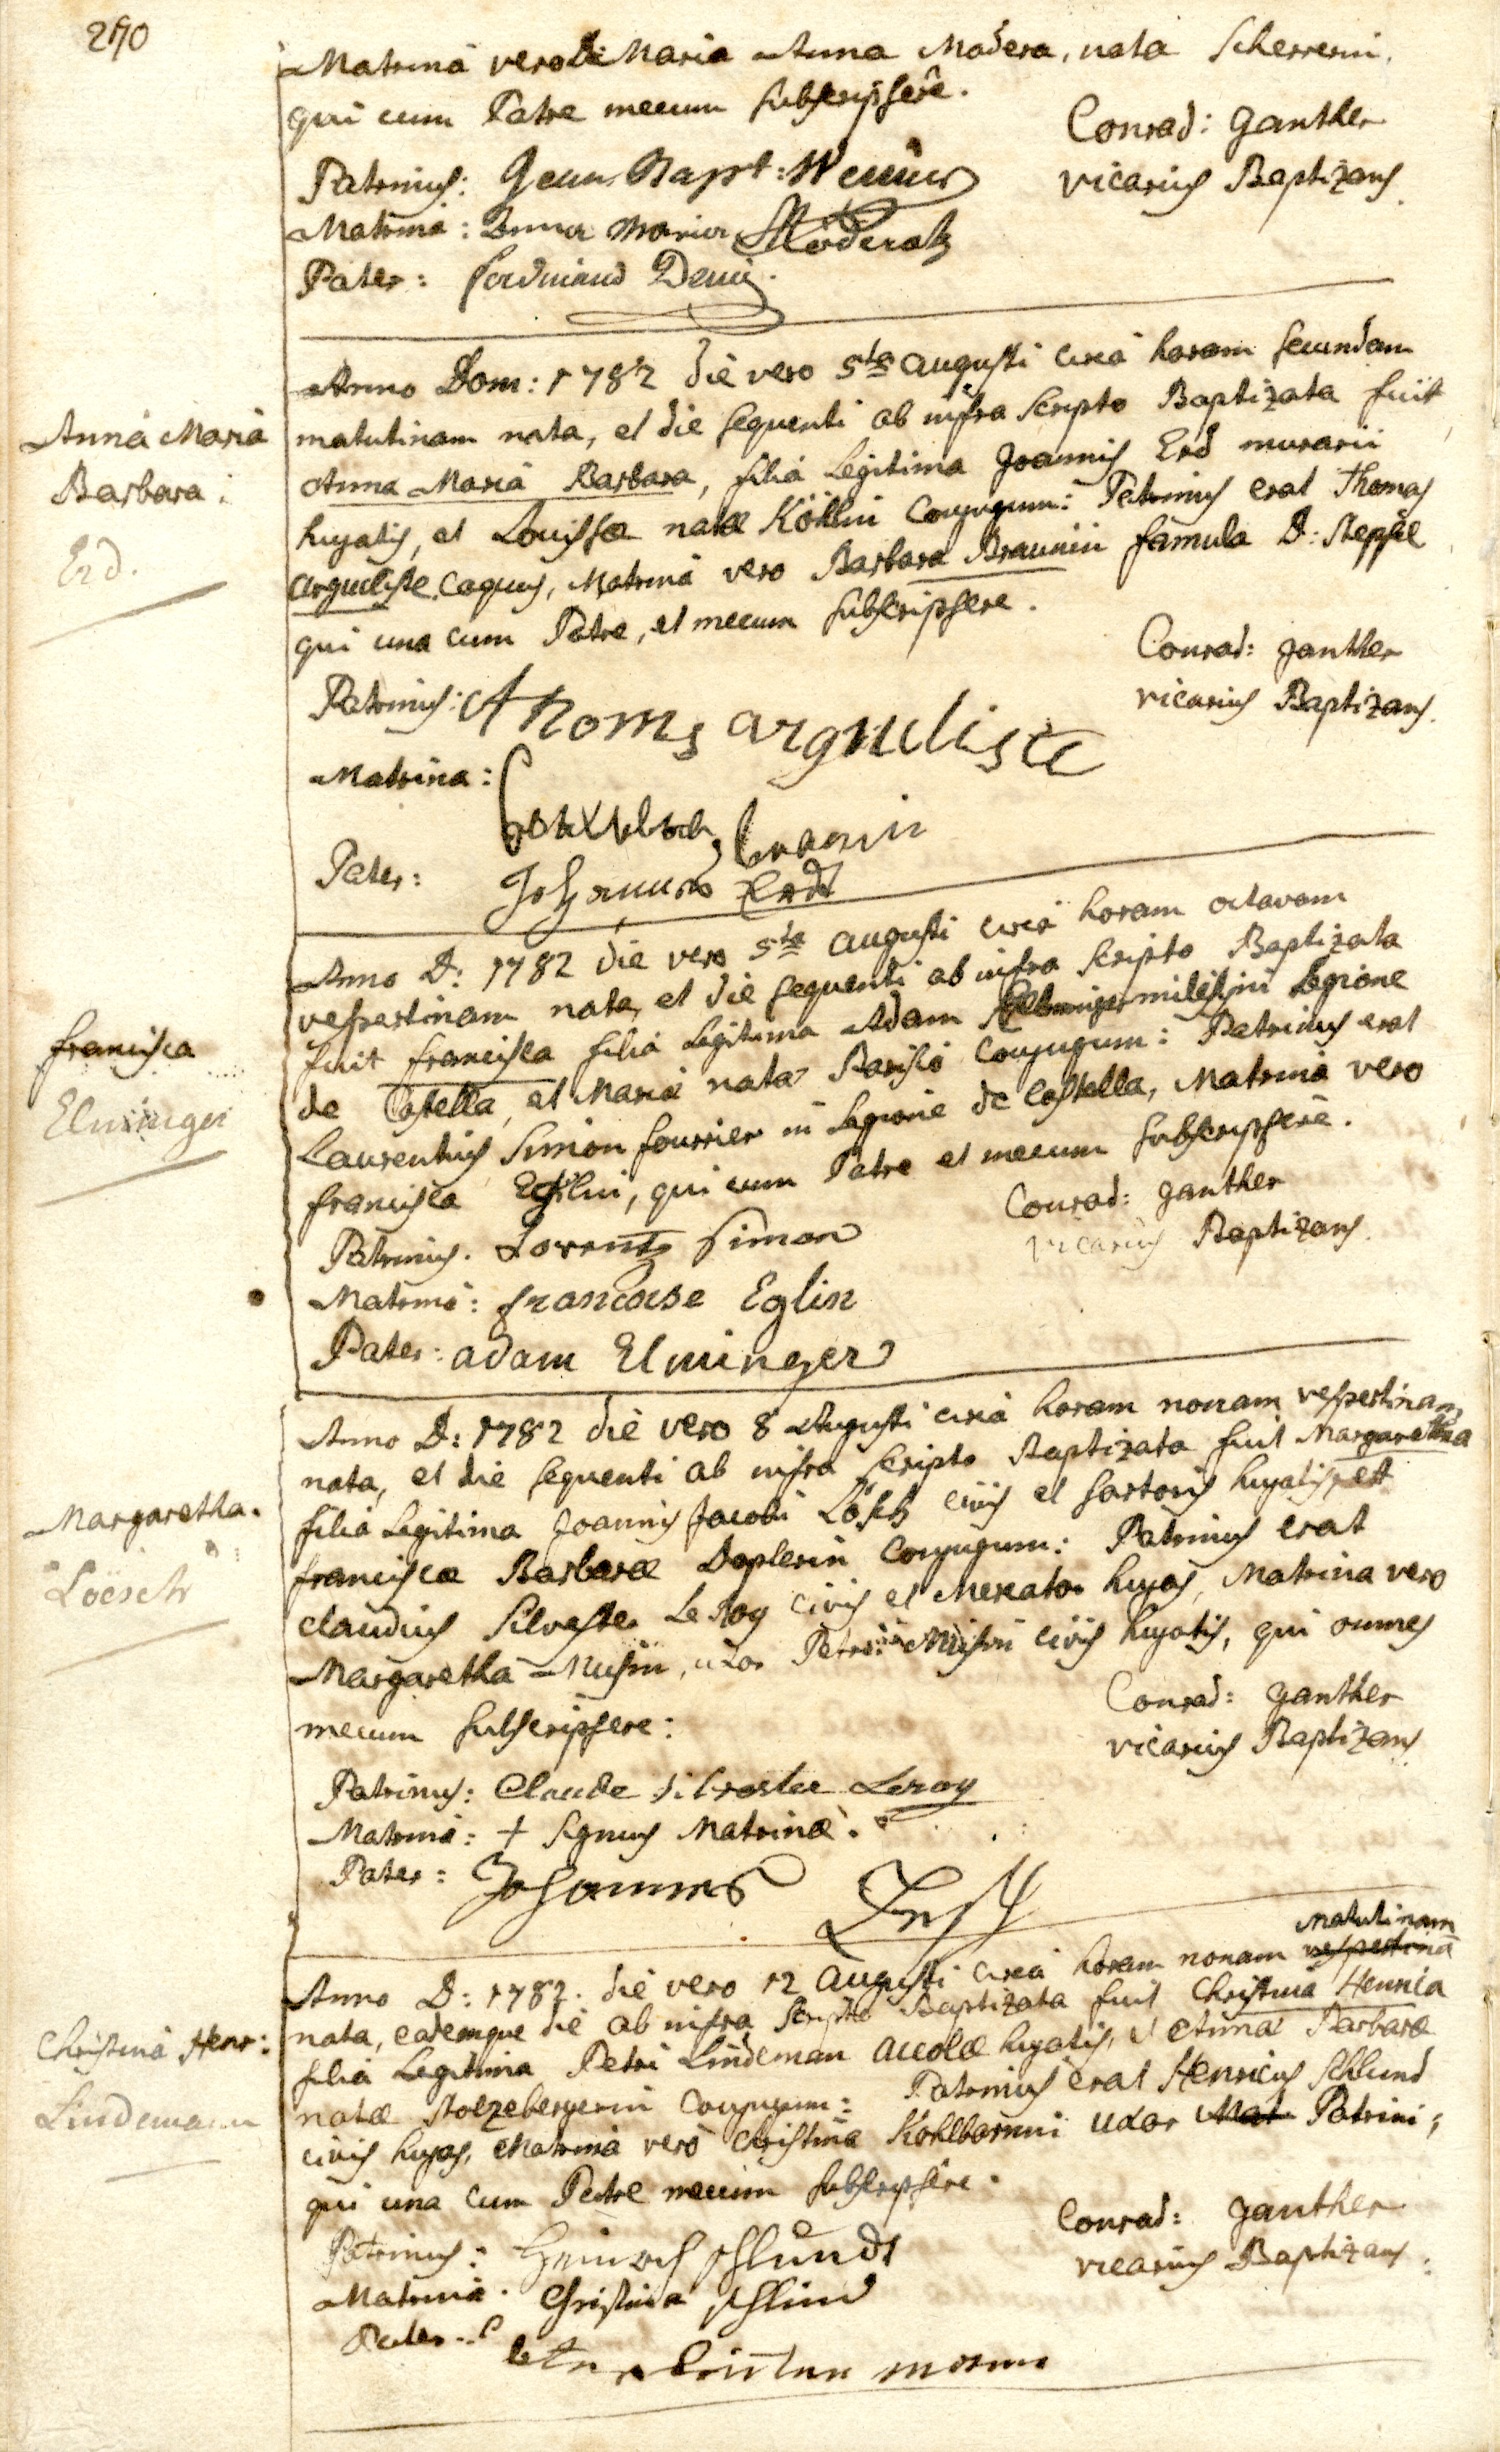 270
Matrina vero D: Maria Anna Madera, nata Scherrerin,
qui cum Patre mecum subscripsere.
Conrad: Ganther
vicarius Baptizans.
Patrinus: Jean Bapt:
Matrina: Anna Maria
Pater: Ferdinand
Anna Maria
Barbara:
Erd.
Anno Dom: 1782 die vero 5ta Augusti circa horam secundam
matutinam nata, et die sequenti ab infra scripto Baptizata fuit
Anna Maria Barbara, filia Legitima Joannis Erd murarii
hujatis, et Louissæ natæ Köhlin Conjugum: Patrinus erat Thomas
Argueliste Coquus, Matrina vero Barbara Braunin famula D:
qui una cum Patre, et mecum subscripsere.
Conrad: Ganther
vicarius Baptizans.
Patrinus: Thoms argueliste
Matrina: braunin
Pater: Johannes Erdt
Francisca
Elminger
Anno D: 1782 die vero 5ta Augusti circa horam octavam
vespertinam nata, et die sequenti ab infra scripto Baptizata
fuit Francisca filia Legitima Adam Elminger in Legione
de Castella, et Maria nata Conjugum: Patrinus erat
Laurentius Simon fourrier in Legione de Castella, Matrina vero
Francisca Eglin, qui cum Patre et mecum subscripsere.
Conrad: Ganther
vicarius Baptizans.
Patrinus. Lorentz Simon
Matrina: francoise Eglin
Pater: adam Elminger
Margaretha.
Loësch
Anno D: 1782 die vero 8 Augusti circa horam nonam vespertinam
nata, et die sequenti ab infra scripto Baptizata fuit Margaretha
filia Legitima Joannis Jacobi Lösch civis et sartoris hujatis, et
Franciscæ Barbaræ Doplerin Conjugum: Patrinus erat
Claudius Silvester Le Roy civis et Mercator hujas, Matrina vero
Margaretha Musin, uxor Petri civis hujatis, qui omnes
mecum subscripsere:
Conrad: Ganther
vicarius Baptizans
Patrinus: Claude silvestre Leroy
Matrina: + signus Matrinæ.
Pater: Johannes Lösch
Christina Henr:
Lindemann
Anno D: 1782. die vero 12 Augusti circa horam nonam vespertinã matutinam
nata, eademque die ab infra scripto Baptizata fuit Christina Henrica
filia Legitima Petri Lindeman accolæ hujatis, et Annæ Barbaræ
natæ Stolzebergerin Conjugum: Patrinus erat Henricus Schlund
civis hujas, Matrina vero Christina Kohlbarnni uxor Mat Patrini;
qui una cum Patre mecum subscripsere.
Conrad: Ganther
vicarius Baptizans.
Patrinus: Heinrich schlundt
Matrina. Christina schlund
Pater: